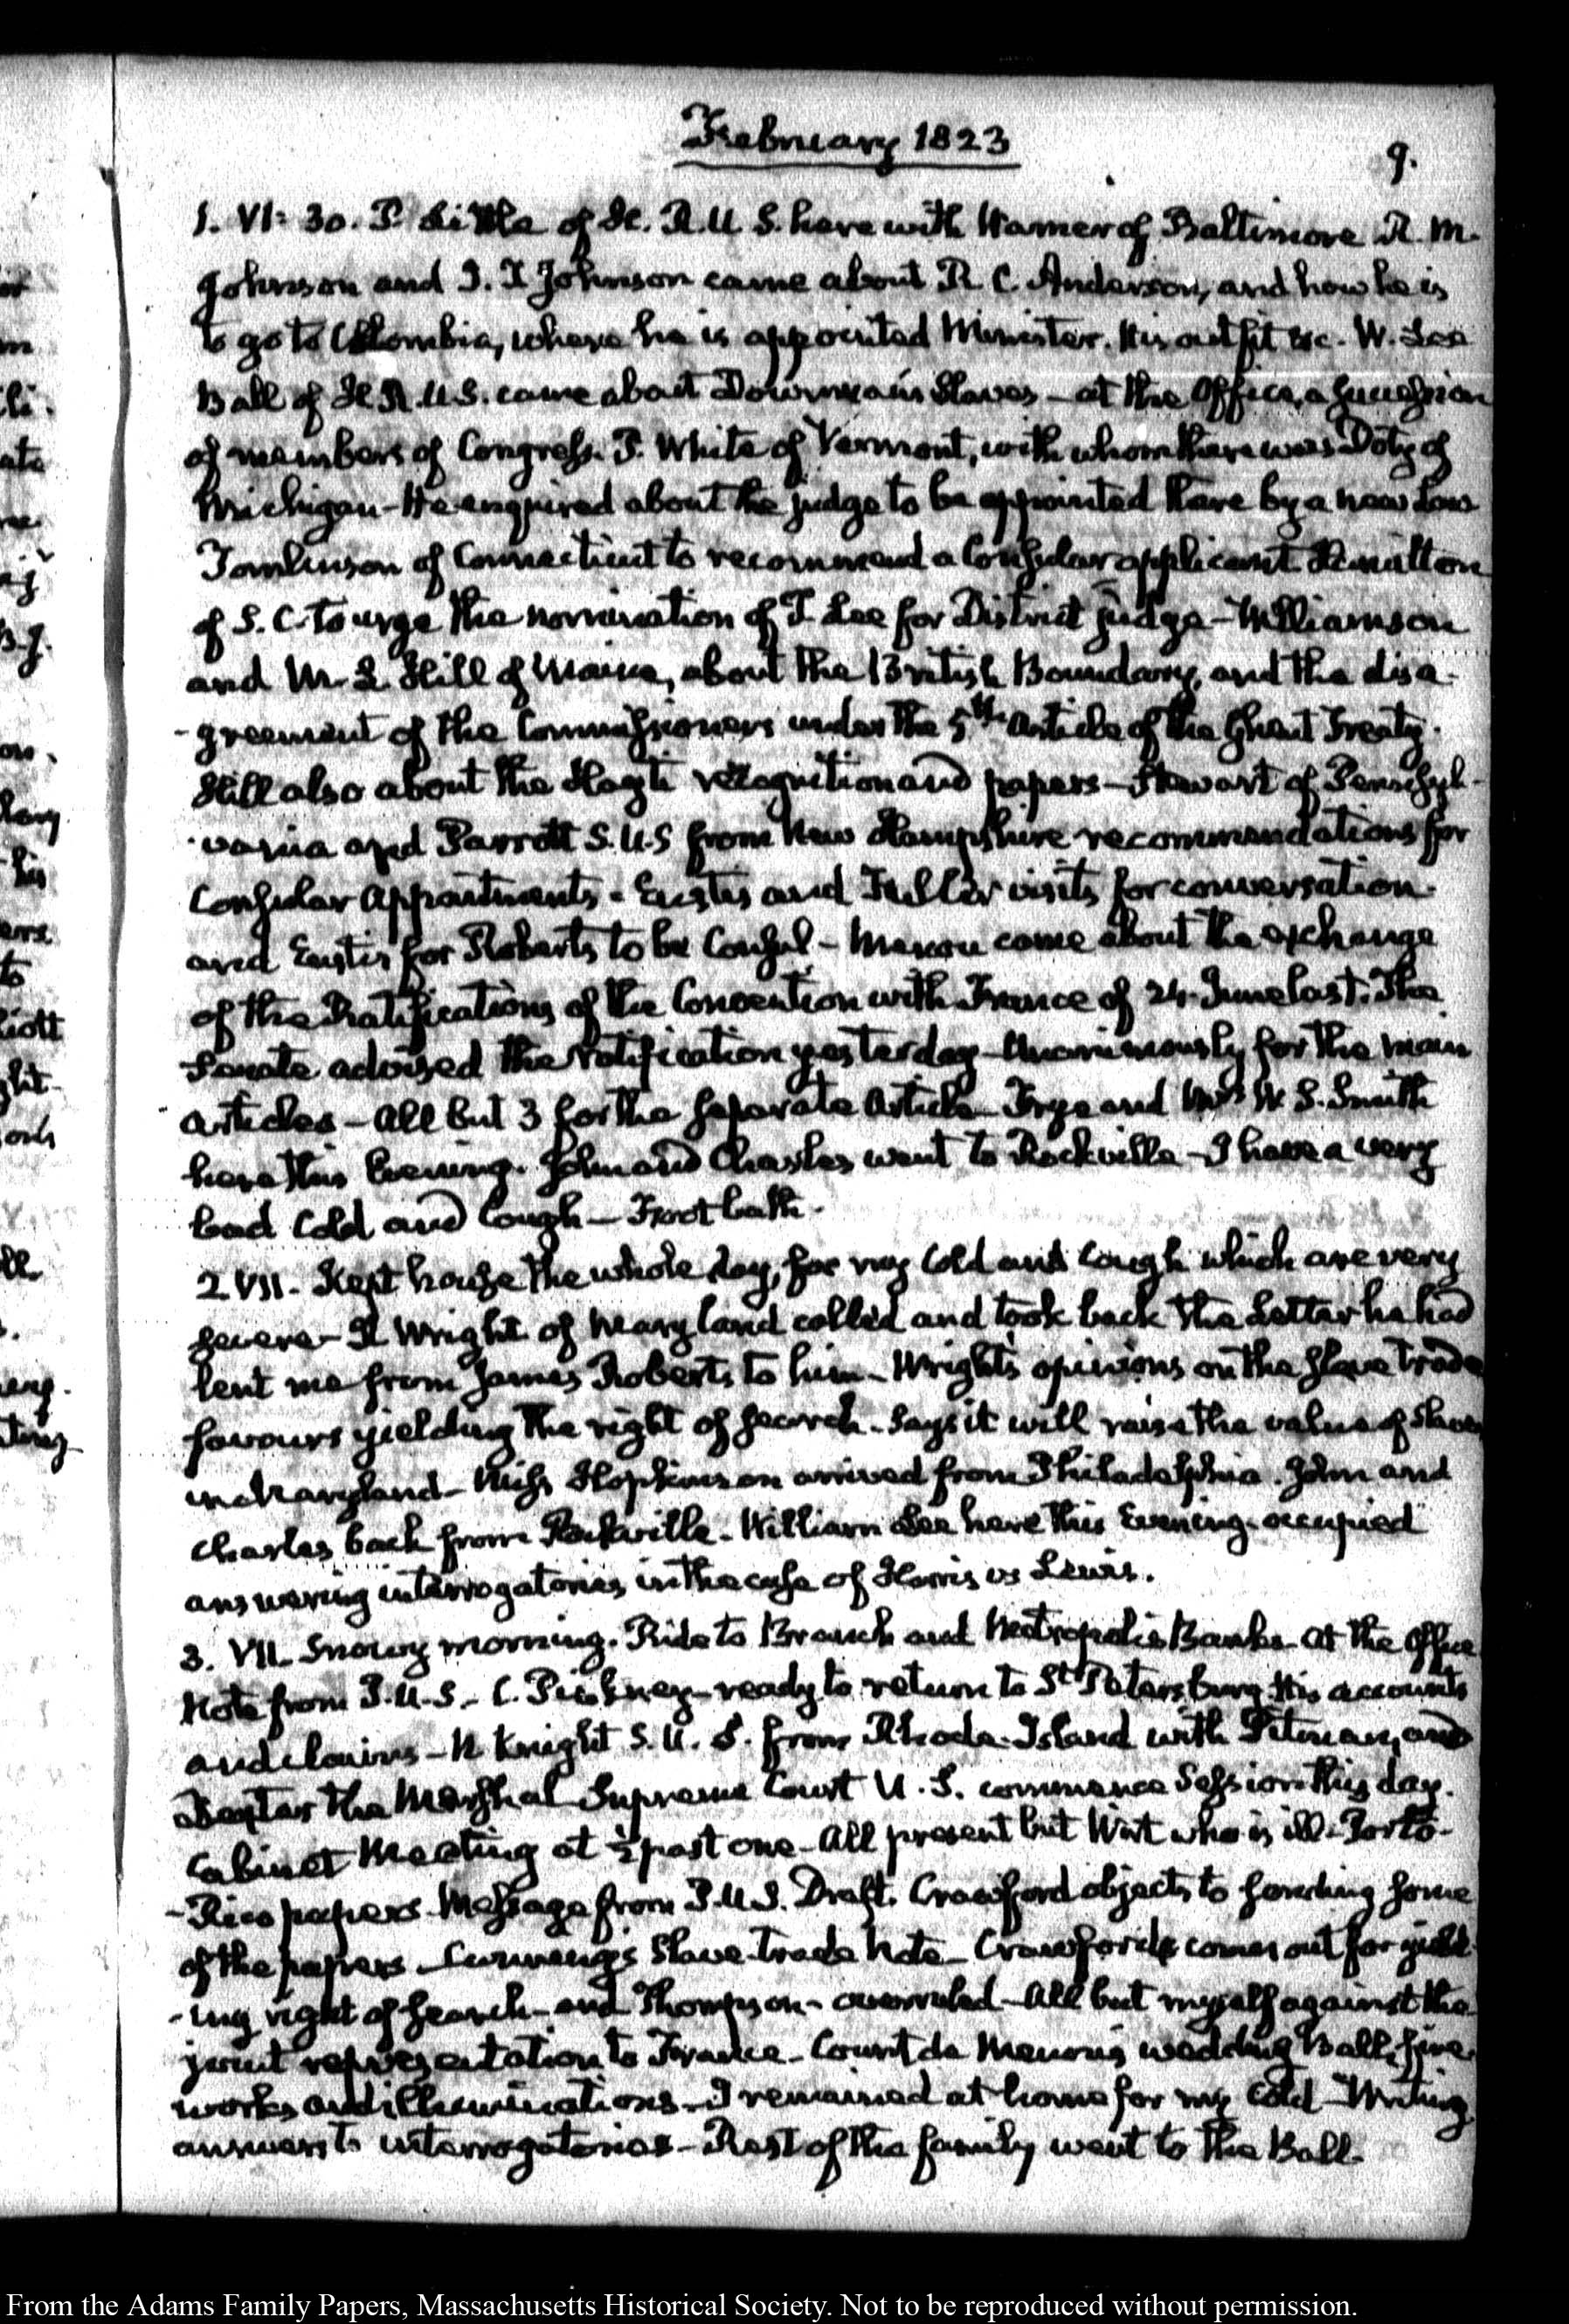 February 1823
9.
1. VI: 30. P. Little of H. R. U S. here with Warner of Baltimore R. M.
Johnson and J. T Johnson came about R C. Anderson, and how he is
to go to Colombia, where he is appointed Minister. His outfit &c. W. Lee
Ball of H R. U.S. came about Downman's Slaves — at the Office, a succession
of members of Congress. P. White of Vermont, with whom there was Doty of
Michigan — He enquired about the judge to be appointed there by a new Law
Tomlinson of Connecticut to recommend a Consular applicant Hamilton
of S. C. to urge the nomination of T. Lee for District judge — Williamson
and M. L. Hill of Maine, about the British Boundary, and the disa-
-greement of the Commissioners under the 5th. Article of the Ghent Treaty.
Hill also about the Hayti recognition and papers — Stewart of Pennsyl-
-vania and Parrott S. U.S from New Hampshire recommendations for
Consular Appointments. Eustis and Fuller visits for conversation.
and Eustis for Roberts to be Consul — Menou came about the exchange
of the Ratifications of the Convention with France of 24. June last. The
Senate advised the ratification yesterday — Unanimously for the main
articles — All but 3 for the separate Article — Frye and Mrs W. S. Smith
here this Evening. John and Charles went to Rockville — I have a very
bad Cold and Cough — Foot bath.
2 VII. Kept house the whole day, for my Cold and Cough which are very
severe — R Wright of Maryland called and took back the Letter he had
lent me from James Roberts to him — Wright's opinions on the slave trade
favours yielding the right of search. Says it will raise the value of Slaves
in Maryland — Miss Hopkinson arrived from Philadelphia. John and
Charles back from Rockville. William Lee here this Evening. occupied
answering interrogatories in the case of Harris vs Lewis.
3. VII. Snowy morning. Ride to Branch and Metropolis Banks — At the Office
Note from P.U.S. — C. Pinkney — ready to return to St Petersburg His accounts
and claims — N Knight S. U. S. from Rhode-Island with Pitman, and
Dexter the Marshal Supreme Court U. S. commence Session this day.
Cabinet Meeting at ½ past one — All present but Wirt who is ill — Porto-
-Rico papers. Message from P.U.S. Draft. Crawford objects to sending some
of the papers — Canning's Slave-trade Note — Crawford comes out for yield-
-ing right of search — and Thompson — overruled — All but myself against the
joint representation to France — Count de Menou's wedding Ball, fire-
works and illuminations — I remained at home for my Cold — Writing
answers to interrogatories — Rest of the family went to the Ball.
From the Adams Family Papers, Massachusetts Historical Society. Not to be reproduced without permission.